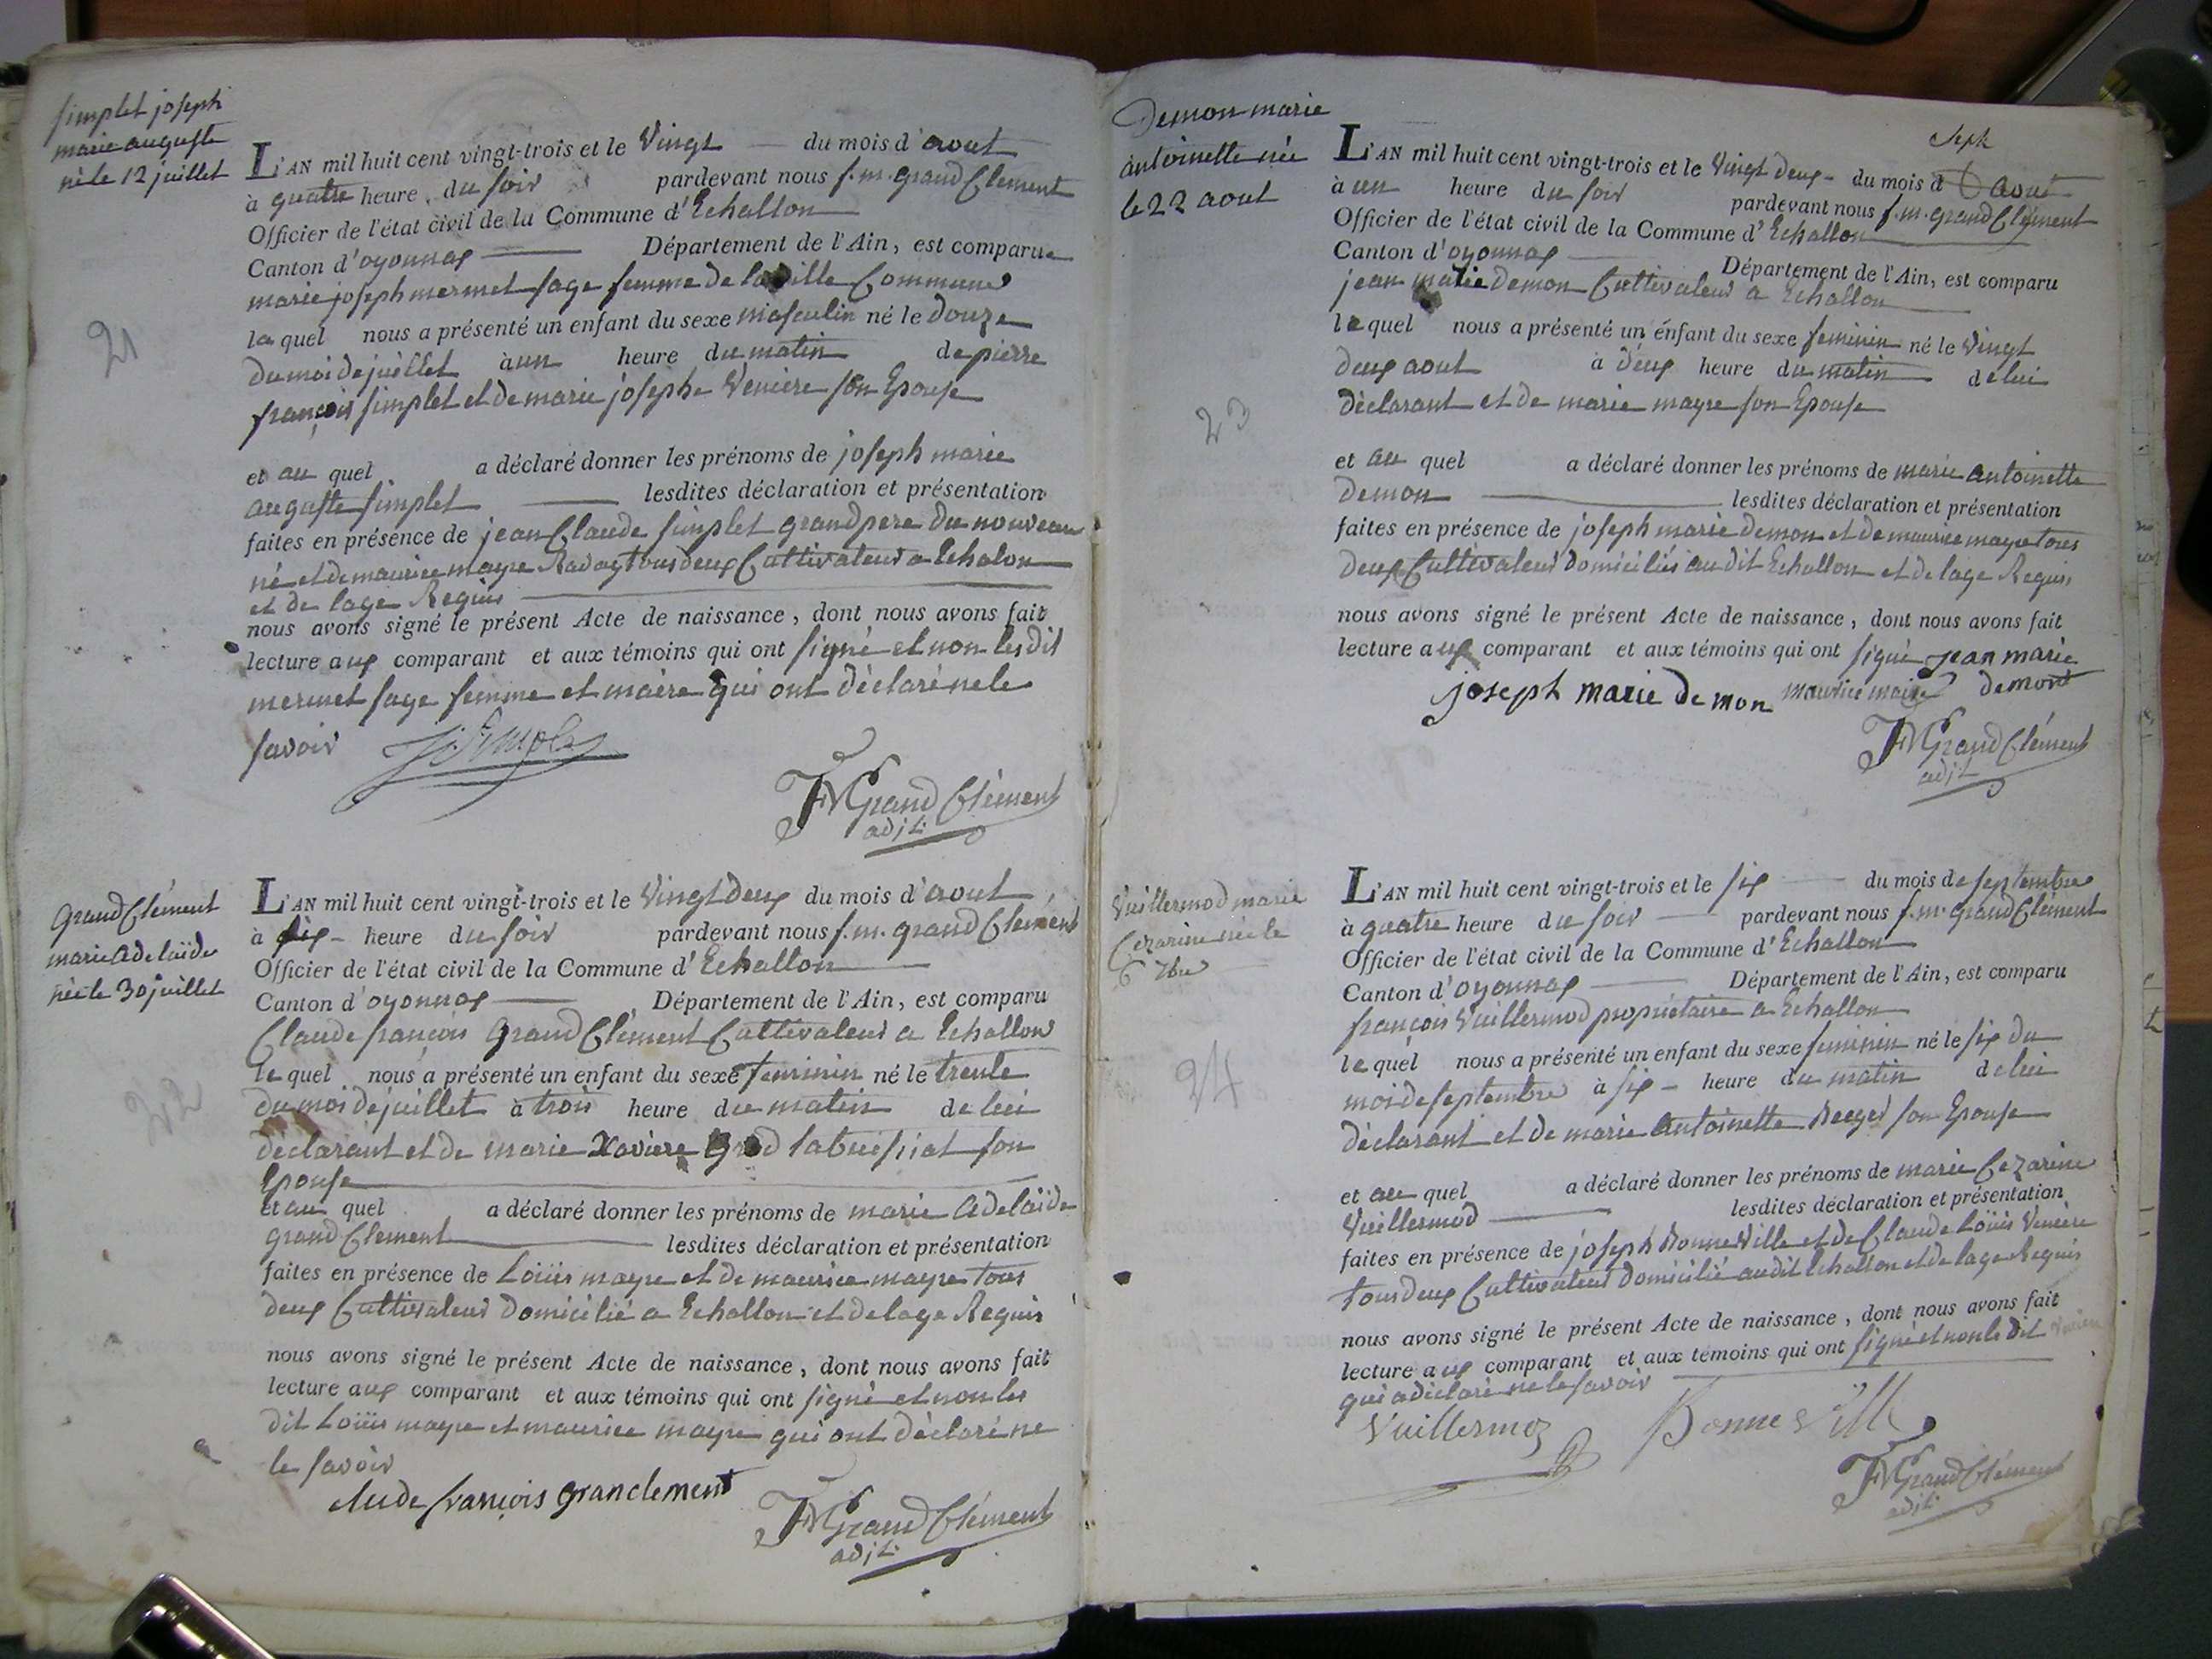 Simplet joseph
marie auguste
né le 12 juillet
21
L'AN mil huit cent vingt-trois et le Vingt du mois d'aout
à quatre heure du soir pardevant nous f. m. grand Clement
Officier de l'état civil de la Commune d'Echallon
Canton d'oyonnax Département de l'Ain, est comparue
marie joseph mermet sage femme de la ville Commune
laquel nous a présenté un enfant du sexe masculin né le douze
du moi de juillet à un heure du matin de pierre
françois simplet et de marie josephe Veniere son Epouse
et au quel a déclaré donner les prénoms de joseph marie
auguste simplet lesdites déclaration et présentation
faites en présence de jean Claude simplet grand pere du nouveau
né et de maurice mayre tous deux Cultivateurs a Echalon
et de lage Requis
nous avons signé le présent Acte de naissance, dont nous avons fait
lecture aux comparant et aux témoins qui ont signé et non lesdit
mermet sage femme et maire qui ont déclaré ne le
savoir
FM Grand Clément
adjt
Grand Clément
marie adelaïde
née le 30 juillet
22
L'AN mil huit cent vingt-trois et le Vingt deux du mois d'aout
à six heure du soir pardevant nous f. m. grand Clément
Officier de l'état civil de la Commune d'Echallon
Canton d'oyonnax Département de l'Ain, est comparu
Claude françois Grand Clément Cultivateur a Echallon
lequel nous a présenté un enfant du sexe feminin né le trente
du mois de juillet à trois heure du matin de lui
déclarant et de marie Xaviere son
Epouse
et au quel a déclaré donner les prénoms de marie adelaïde
grand Clement lesdites déclaration et présentation
faites en présence de Loüis mayre et de maurice mayre tous
deux Cultivateurs domicilié a Echallon et de lage Requis
nous avons signé le présent Acte de naissance, dont nous avons fait
lecture aux comparant et aux témoins qui ont signé et non les
dit Loüis mayre et maurice mayre qui ont déclaré ne
le savoir
clude françois granclement
FM Grand Clément
adjt
Demon marie
antoinette née
le 22 aout
23
L'AN mil huit cent vingt-trois et le Vingt deux du mois d aout
à un heure du soir pardevant nous f. m. grand Clément
Officier de l'état civil de la Commune d'Echallon
Canton d'oyonnax Département de l'Ain, est comparu
jean marie demon Cultivateur a Echallon
lequel nous a présenté un enfant du sexe feminin né le Vingt
deux aout à deux heure du matin de lui
déclarant et de marie mayre son Epouse
et au quel a déclaré donner les prénoms de marie antoinette
demon lesdites déclaration et présentation
faites en présence de joseph marie demon et de maurice mayre tous
deux Cultivateurs domiciliés audit Echallon et de lage Requis
nous avons signé le présent Acte de naissance, dont nous avons fait
lecture aux comparant et aux témoins qui ont signé jean marie
joseph marie demon maurice maire demont
FM Grand Clément
adjt
Vuillermod marie
Cezarine née le
6 7bre
24
L'AN mil huit cent vingt-trois et le six du mois de septembre
à quatre heure du soir pardevant nous f. m. grand Clément
Officier de l'état civil de la Commune d'Echallon
Canton d'oyonnax Département de l'Ain, est comparu
françois Vuillermod propriétaire a Echallon
lequel nous a présenté un enfant du sexe feminin né le six du
moi de septembre à six heure du matin de lui
déclarant et de marie antoinette son Epouse
et au quel a déclaré donner les prénoms de marie Cezarine
Vuillermod lesdites déclaration et présentation
faites en présence de joseph Bonneville et de Claude Loüis Veniere
tous deux Cultivateurs domicilié audit Echallon et de lage Requis
nous avons signé le présent Acte de naissance, dont nous avons fait
lecture aux comparant et aux témoins qui ont signé et non le dit
qui a déclaré ne le savoir
Vuillermoz Bonneville
FM Grand Clément
adjt